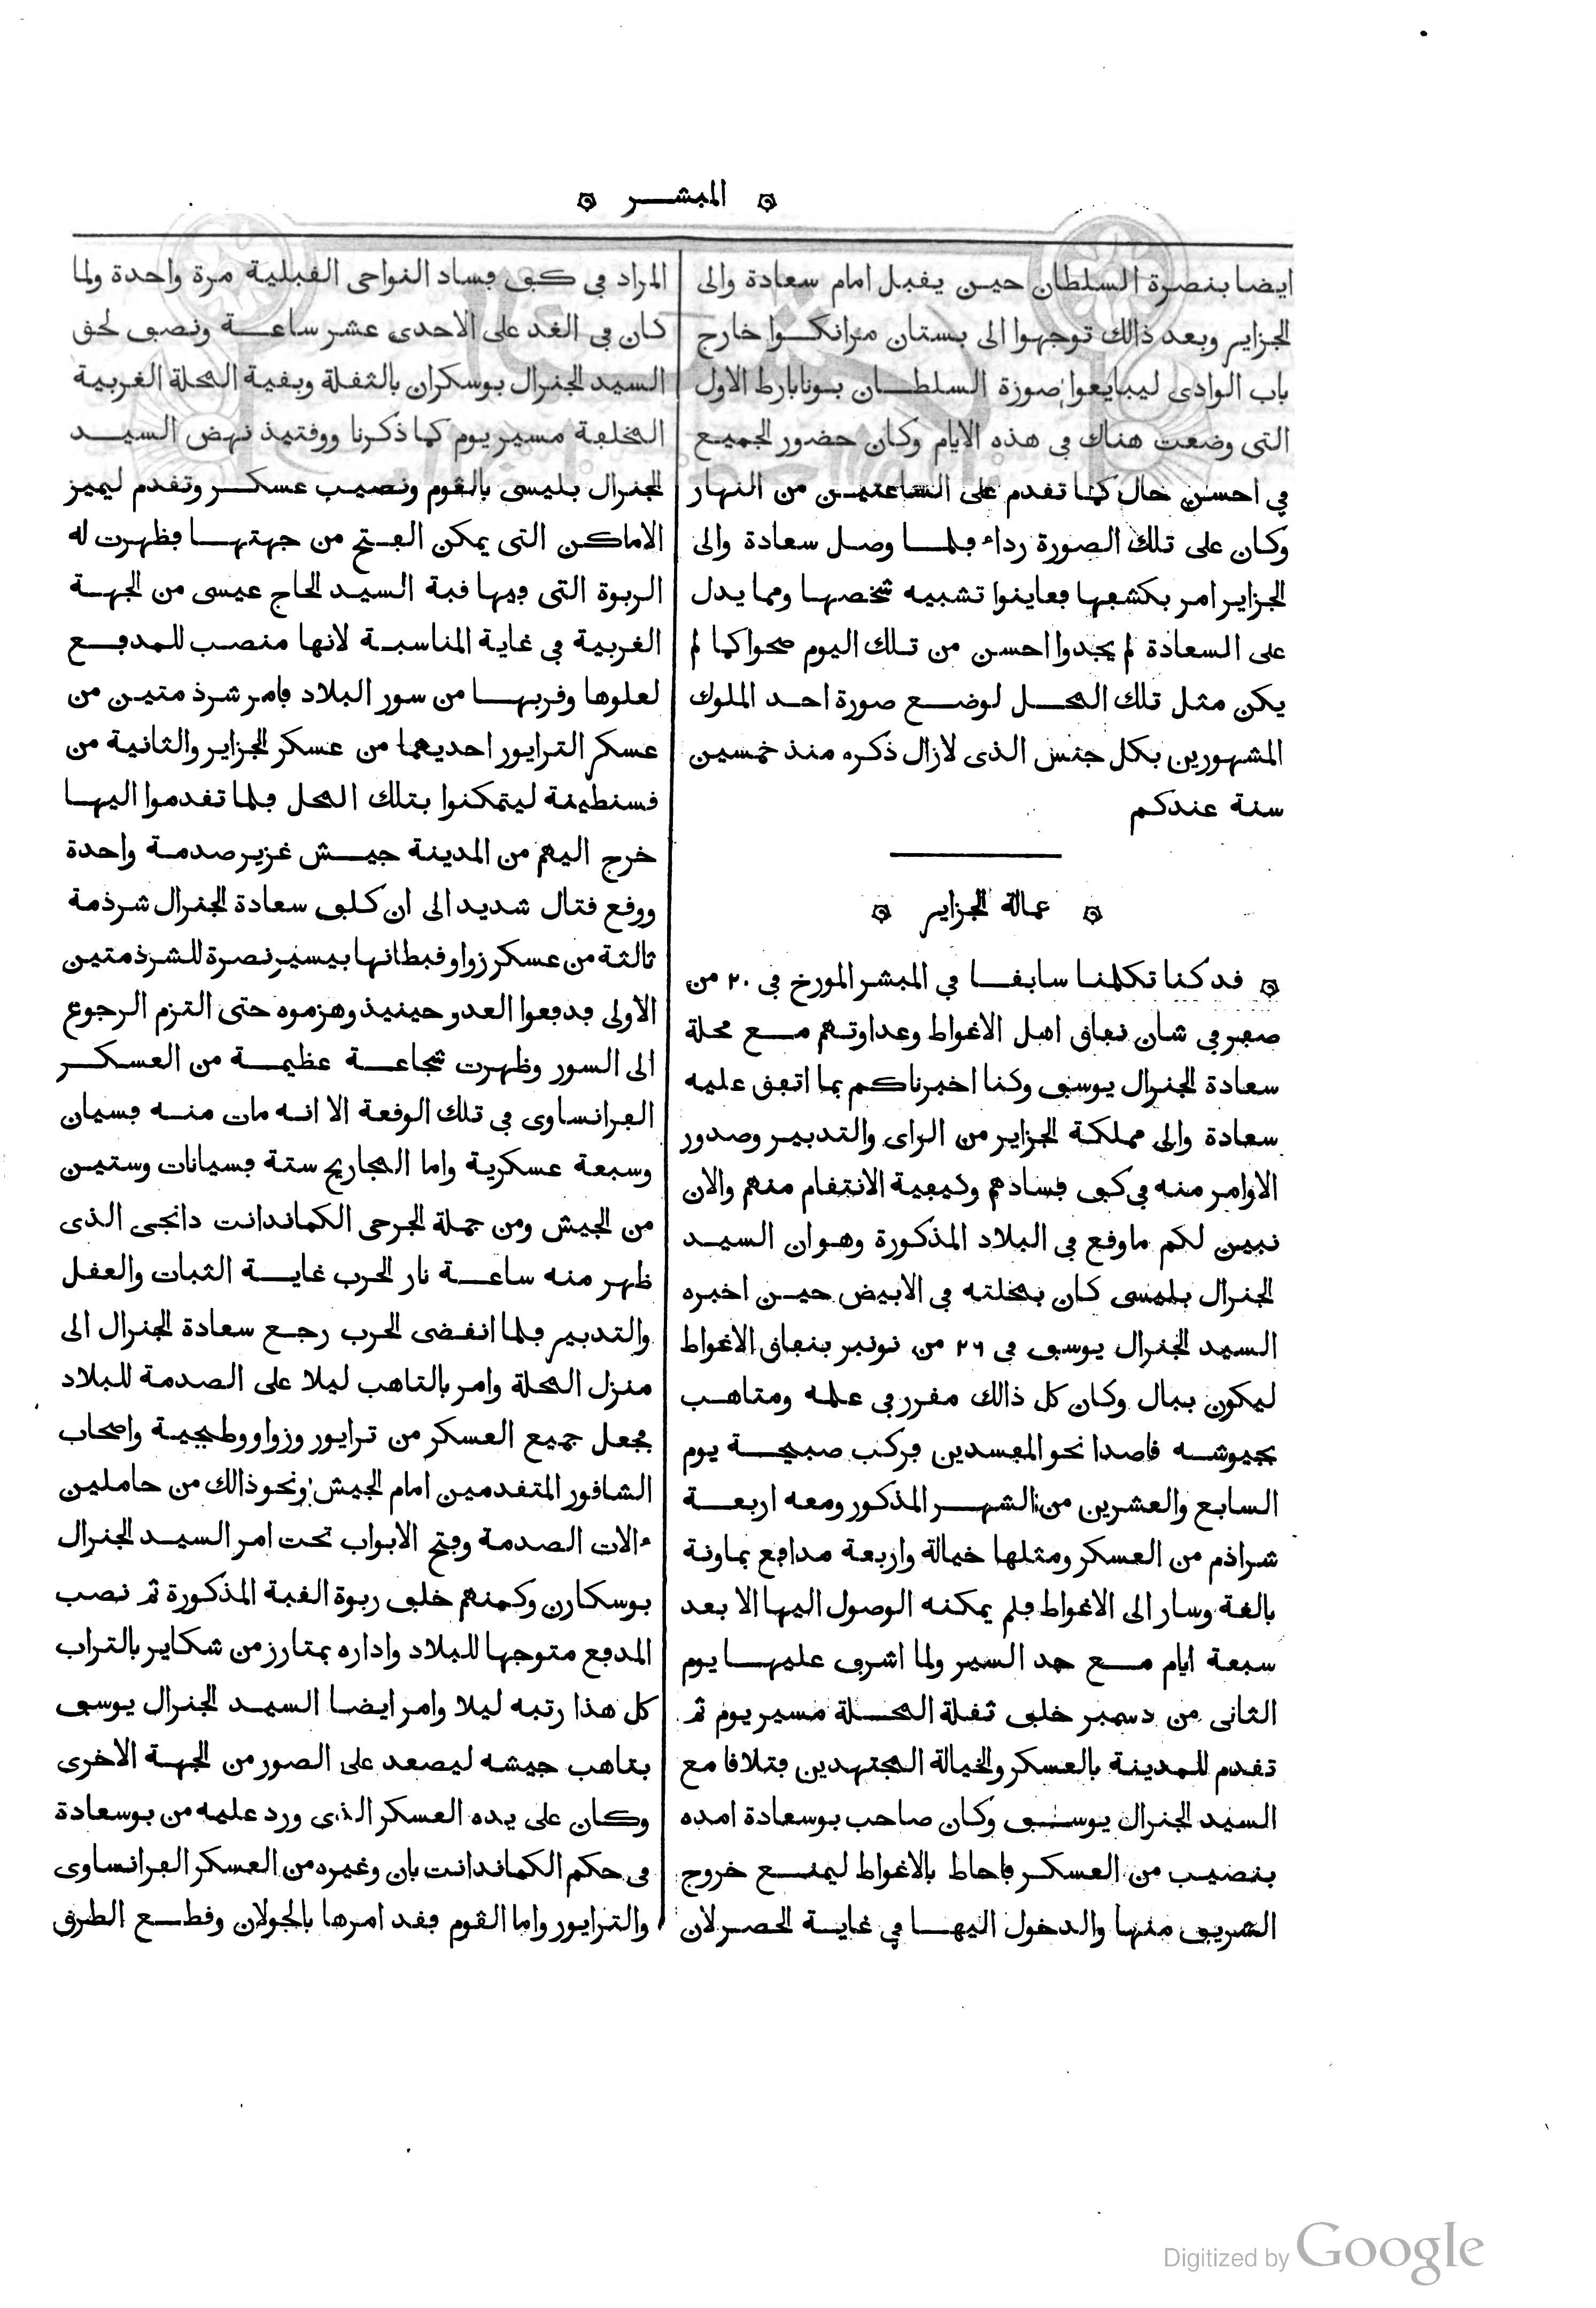 المبشر
ايضا بنصرة السلطان حين يقبل امام سعادة والى
الجزاير وبعد ذالك توجهوا الى بستان مرانكوا خارج
باب الوادى ليبايعوا صورة السلطان بونابارط الاول
التى وضعت هناك فى هذه الايام وكان حضور الجميع
فى احسن حال كما تقدم على الساعتين من النهار
وكان على تلك الصورة رداء فلما وصل سعادة والى
الجزاير امر بكشفها فعاينوا تشبيه شخصها ومما يدل
على السعادة لم يجدوا احسن من تلك اليوم صحوا كما لم
يكن مثل تلك المحل لوضع صورة احد الملوك
المشهورين بكل جنس الذى لازال ذكره منذ خمسين
سنة عندكم
عمالة الجزاير
قد كنا تكلمنا سابقا فى المبشر المورخ فى ٢٠ من
صفر فى شان نفاق اهل الاغواط وعداوتهم مع محلة
سعادة الجنرال يوسف وكنا اخبرناكم بما اتفق عليه
سعادة والى مملكة الجزاير من الراى والتدبير وصدور
الاوامر منه فى كف فسادهم وكيفية الانتقام منهم والان
نبين لكم ماوقع فى البلاد المذكورة وهو ان السيد
الجنرال بليسى كان بمحلته فى الابيض حين اخبره
السيد الجنرال يوسف فى ٢٦ من نونبر بنفاق الاغواط
ليكون ببال وكان كل ذالك مقرر فى علمه ومتاهب
بجيوشه قاصدا نحو المفسدين فركب صبيحة يوم
السابع والعشرين من الشهر المذكور ومعه اربعة
شراذم من العسكر ومثلها خيالة واربعة مدافع بماونة
بالغة وسار الى الاغواط فلم يمكنه الوصول اليها الا بعد
سبعة ايام مع جد السير ولما اشرف عليها يوم
الثانى من دسمبر خلف ثقلة المحلة مسير يوم ثم
تقدم للمدينة بالعسكر والخيالة المجتهدين فتلاقا مع
السيد الجنرال يوسف وكان صاحب بوسعادة امده
بنصيب من العسكر فاحاط بالاغواط ليمنع خروج
الشريف منها والدخول اليها فى غاية الحصر لان
المراد فى كف فساد النواحى القبلية مرة واحدة ولما
كان فى الغد على الاحدى عشر ساعة ونصف لحق
السيد الجنرال بوسكران بالثقلة وبقية المحلة الغربية
المخلفة مسير يوم كما ذكرنا ووقتيذ نهض السيد
الجنرال بليسى بالقوم ونصيب عسكر وتقدم ليميز
الاماكن التى يمكن الفتح من جهتها فظهرت له
الربوة التى فيها قبة السيد الحاج عيسى من الجهة
الغربية فى غاية المناسبة لانها منصب للمدفع
لعلوها وقربها من سور البلاد فامر شرذ متين من
عسكر الترايور احديهما من عسكر الجزاير والثانية من
قسنطينة ليتمكنوا بتلك المحل فلما تقدموا اليها
خرج اليهم من المدينة جيش غزير صدمة واحدة
ووقع قتال شديد الى ان كلف سعادة الجنرال شرذمة
ثالثة من عسكر زواو قبطانها بيسير نصرة للشرذمتين
الاولى فدفعوا العدو حينيذ وهزموه حتى التزم الرجوع
الى السور وظهرت شجاعة عظيمة من العسكر
الفرانساوى فى تلك الوقعة الا انه مات منه فسيان
وسبعة عسكرية واما المجاريح ستة فسيانات وستين
من الجيش ومن جملة الجرحى الكماندانت دانجى الذى
ظهر منه ساعة نار الحرب غاية الثبات والعقل
والتدبير فلما انقضى الحرب رجع سعادة الجنرال الى
منزل المحلة وامر بالتاهب ليلا على الصدمة للبلاد
فجعل جميع العسكر من ترايور وزواو وطبجية واصحاب
الشاقور المتقدمين امام الجيش ونحو ذالك من حاملين
ءالات الصدمة وفتح الابواب تحت امر السيد الجنرال
بوسكارن وكمنهم خلف ربوة القبة المذكورة ثم نصب
المدفع متوجها للبلاد واداره بمتارز من شكاير بالتراب
كل هذا رتبه ليلا وامر ايضا السيد الجنرال يوسف
بتاهب جيشه ليصعد على الصور من الجهة الاخرى
وكان على يده العسكر الذى ورد عليه من بوسعادة
فى حكم الكماندانت بان وغيره من العسكر الفرانساوى
والترايور واما القوم فقد امرها بالجولان وقطع الطرق
Digitized by Google